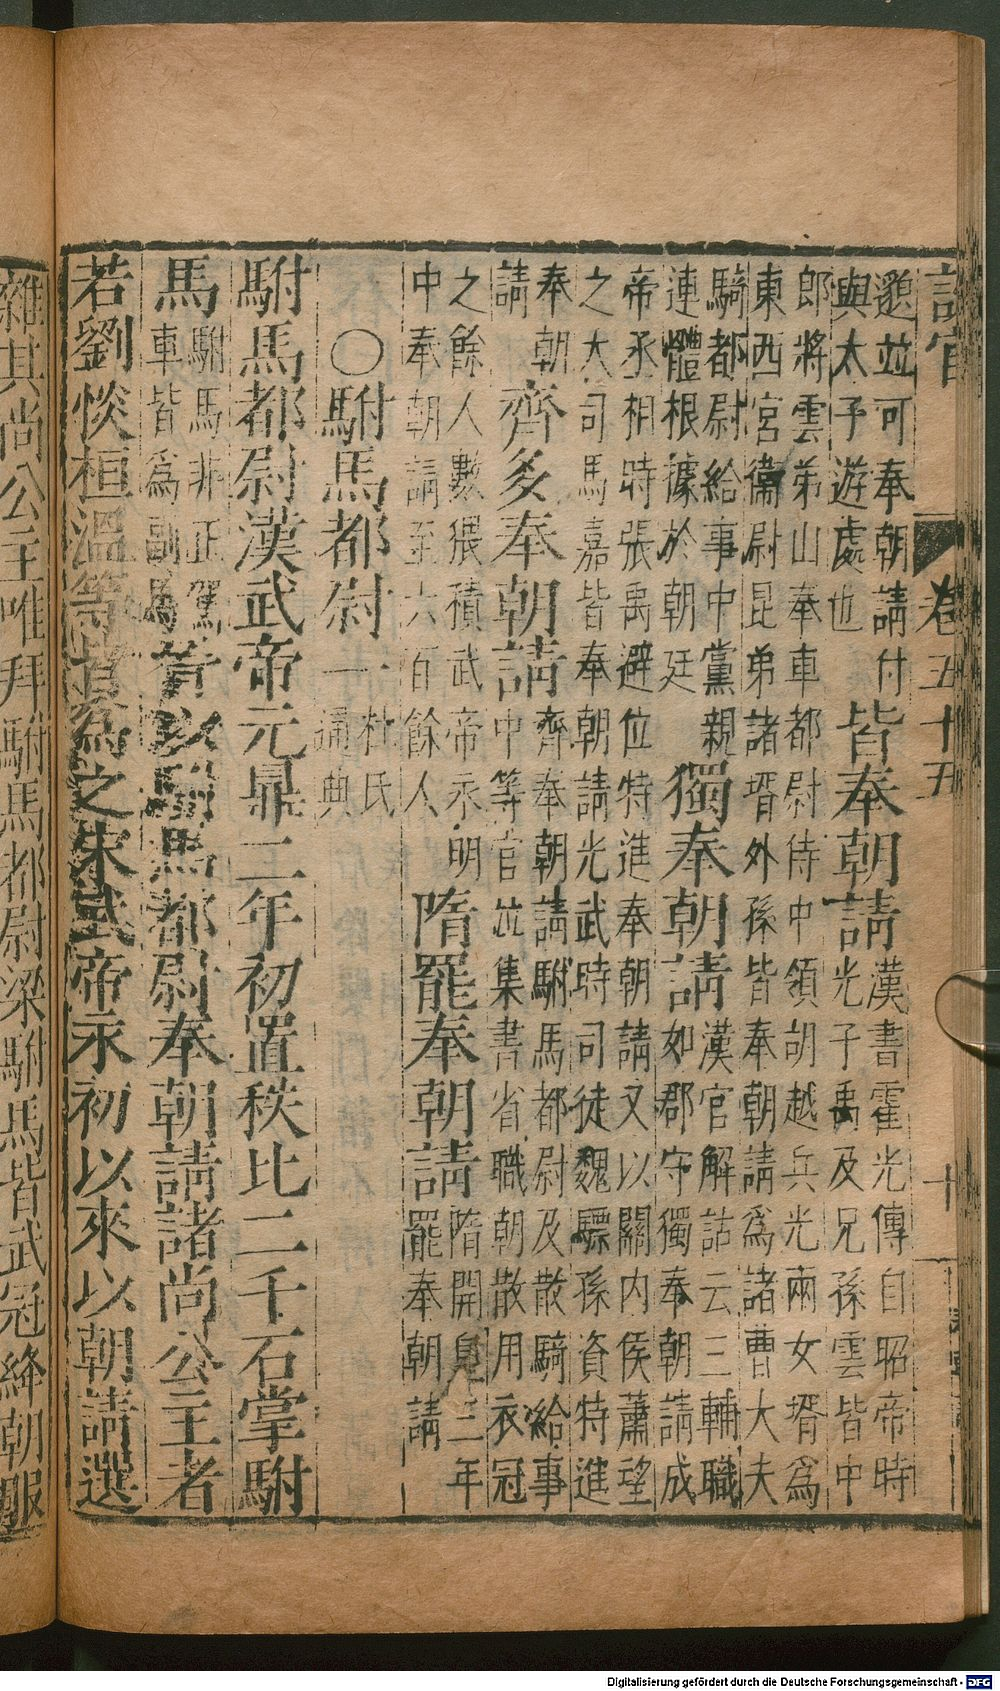 設官 卷五十五 十
邈竝可奉朝請付與太子遊處也皆奉朝請漢書霍光傳自昭帝時光子禹及兄孫雲皆中
郎將雲弟山奉車都尉侍中領胡越兵光兩女壻為東西宮衞尉昆弟諸壻外孫皆奉朝請為諸曹大夫
騎都尉給事中黨親連體根據於朝廷獨奉朝請漢官解詁云三輔職如郡守獨奉朝請成
帝丞相時張禹避位特進奉朝請又以關内侯蕭望之大司馬嘉皆奉朝請光武時司徒魏驃孫資特進
奉朝請齊多奉朝請齊奉朝請駙馬都尉及散騎給事中等官竝集書省職朝散用衣冠
之餘人數猥積武帝永明中奉朝請至六百餘人隋罷奉朝請隋開皇三年罷奉朝請
〇駙馬都尉一杜氏通典
駙馬都尉漢武帝元鼎二年初置秩比二千石掌駙
馬駙馬非正駕車皆為副馬晉以駙馬都尉奉朝請諸尚公主者
若劉惔桓溫等皆為之宋武帝永初以來以朝請選
雜其尚公主唯拜駙馬都尉梁駙馬皆武冠絳朝服
Digitalisierung gefördert durch die Deutsche Forschungsgemeinschaft - DFG